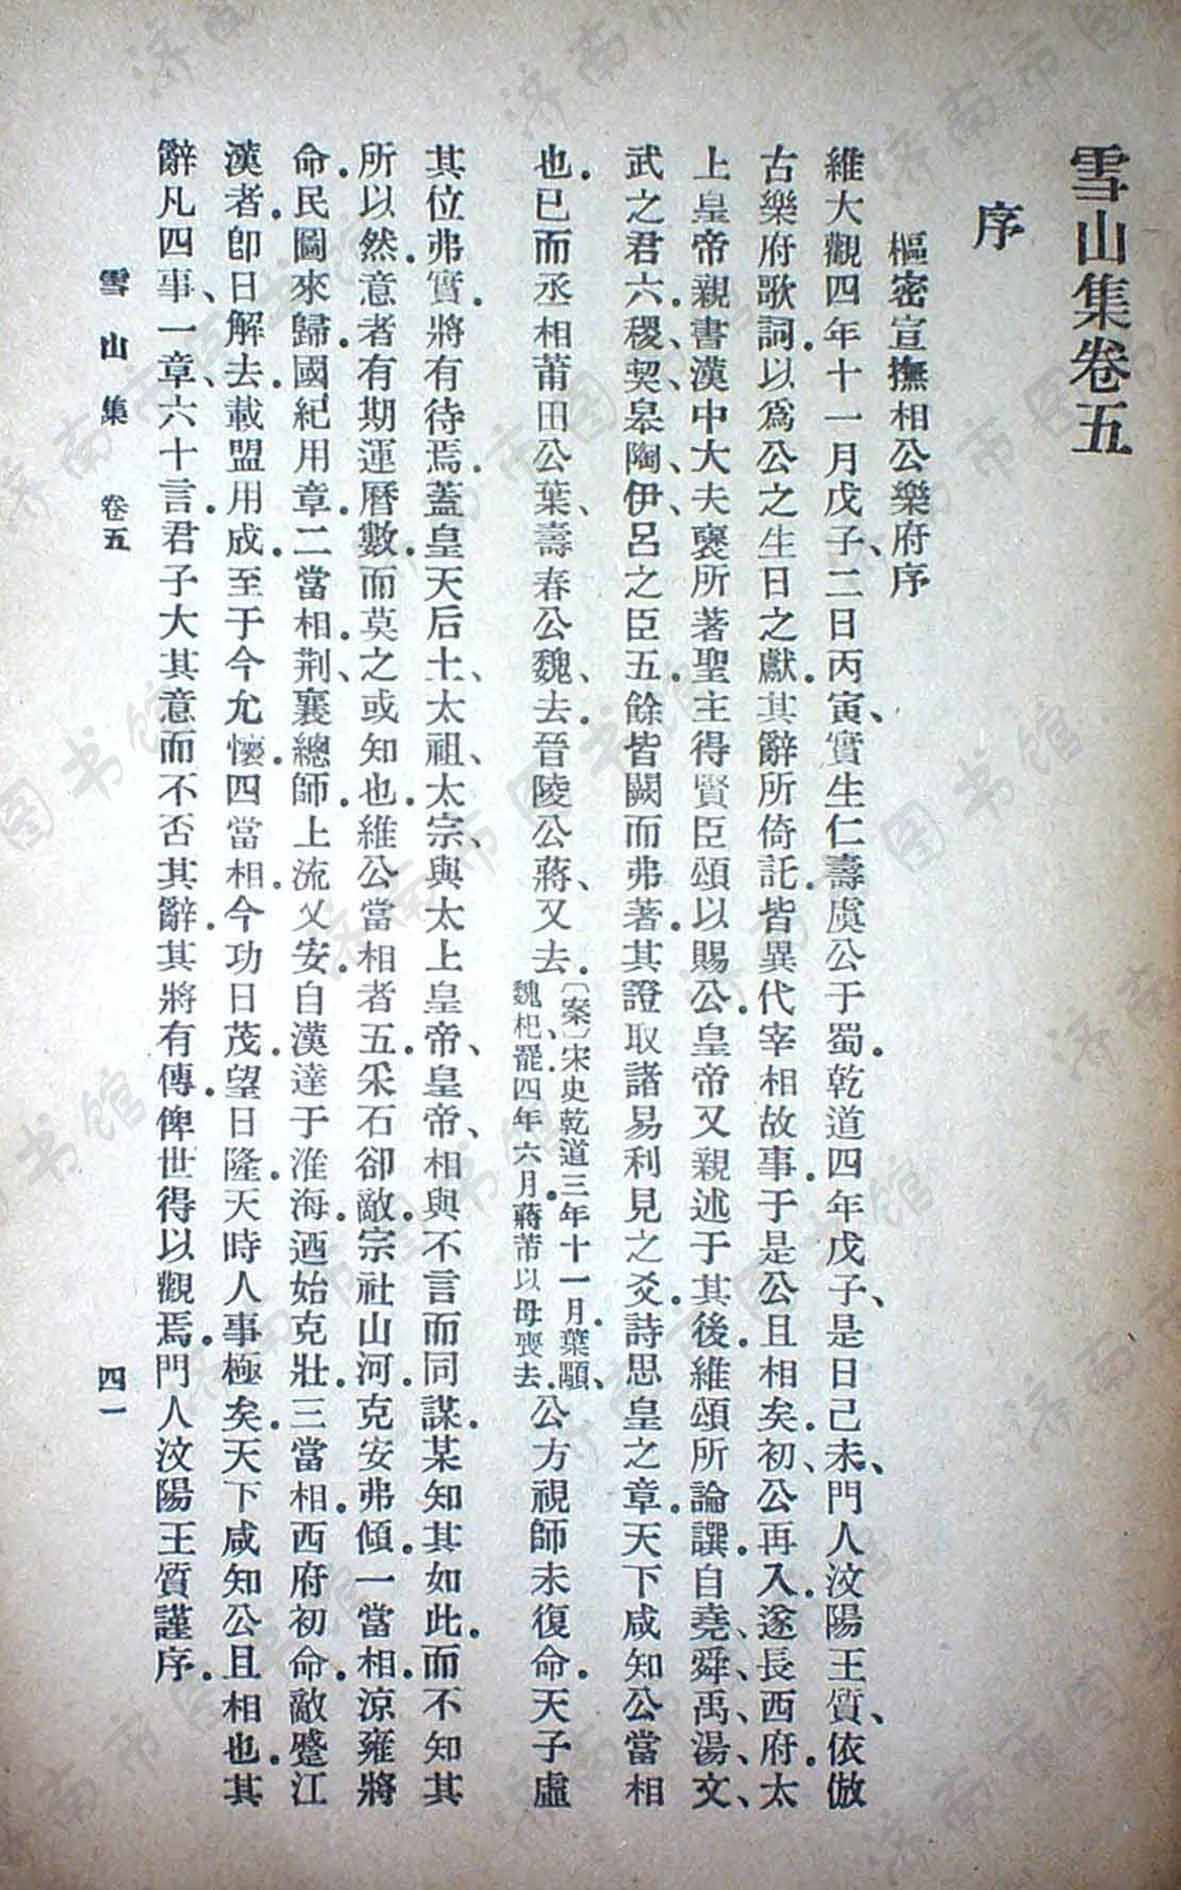 雪山集卷五
序
樞密宣撫相公樂府序
維大觀四年十一月戊子、二日丙寅、實生仁壽虞公于蜀。乾道四年戊子、是日己未、門人汶陽王質、依倣
古樂府歌詞。以爲公之生日之獻。其辭所倚託。皆異代宰相故事。于是公且相矣。初、公再入。遂長西府。太
上皇帝親書漢中大夫襃所著聖主得賢臣頌以賜公。皇帝又親述于其後。維頌所論譔。自堯、舜、禹、湯、文、
武之君六。稷、契、皋陶、伊、呂之臣五。餘皆闕而弗著。其證取諸易利見之爻。詩思皇之章。天下咸知公當相
也。已而丞相莆田公葉、壽春公魏、去。晉陵公蔣、又去。〔案〕宋史乾道三年十一月。葉顒、魏杞、罷。四年六月。蔣芾以母喪去。公方視師未復命。天子虛
其位弗實。將有待焉。蓋皇天后土、太祖、太宗、與太上皇帝、皇帝、相與不言而同謀。某知其如此。而不知其
所以然。意者有期運曆數。而莫之或知也。維公當相者五。采石卻敵。宗社山河。克安弗傾。一當相。涼雍將
命。民圖來歸。國紀用章。二當相。荆、襄總師。上流乂安。自漢達于淮海。迺始克壯。三當相。西府初命。敵蹙江
漢者。卽日解去。載盟用成。至于今允懷。四當相。今功日茂。望日隆。天時人事極矣。天下咸知公且相也。其
辭凡四事、一章、六十言。君子大其意而不否其辭。其將有傳。俾世得以觀焉。門人汶陽王質謹序。
雪山集 卷五 四一